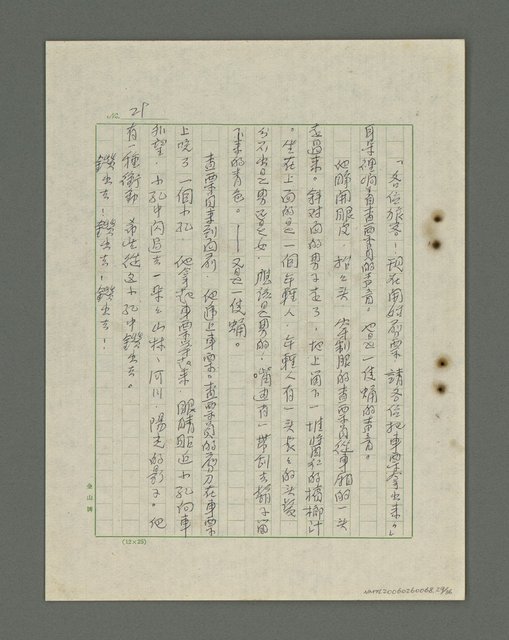 No. 29
「各位旅客!現在開始剪票,請各位把車票拿出來。」
耳朵裡响着查票員的声音。也是一隻蛹的声音。
他睜開眼皮,抬々头,穿制服的查票員從車廂的一头
走過來。斜对面的男子走了,地上留下一堆醬紅的檳榔汁
。坐在上面的是一個年輕人,年輕人有一头長々的头髮
分不出是男還是女,應該是男的,嘴边有一帶刮去鬍子留
下來的青色。——又是一隻蛹。
查票員來到面前,他遞上車票。查票員的剪刀在車票
上咬了一個小孔,他拿起車票來,眼睛貼近小孔向車
外望,小孔中閃過去一朵々山林、河川、陽光的影子。他
有一種衝動,希望從這小孔中鑽出去。
鑽出去!鑽出去!鑽出去!
金山牌
(12×25)